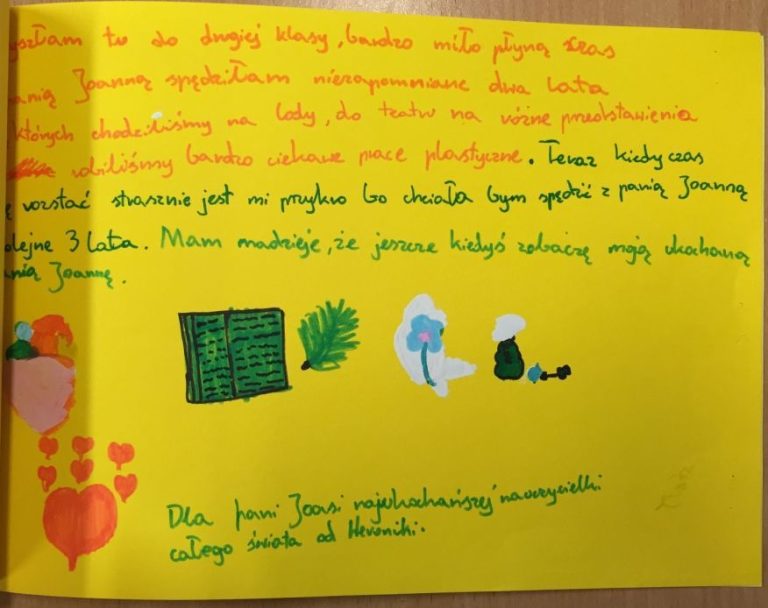 yszłam tu do drugiej klasy, bardzo miło płyną szas
anią Joanną spędziłam niezapomniane dwa lata
których chodziliśmy na lody, do teatru na różne przedstawienia
robiliśmy bardzo ciekawe prace plastyczne. Teraz kiedy czas
ę rozstać strasznie jest mi przykro bo chciała bym spędzić z panią Joanną
olejne 3 lata. Mam nadzieje, że jeszcze kiedyś zobaczę moją ukochaną
anią Joannę.
Dla pani Joasi najukochańszej nauczycielki
całego świata od Weroniki.